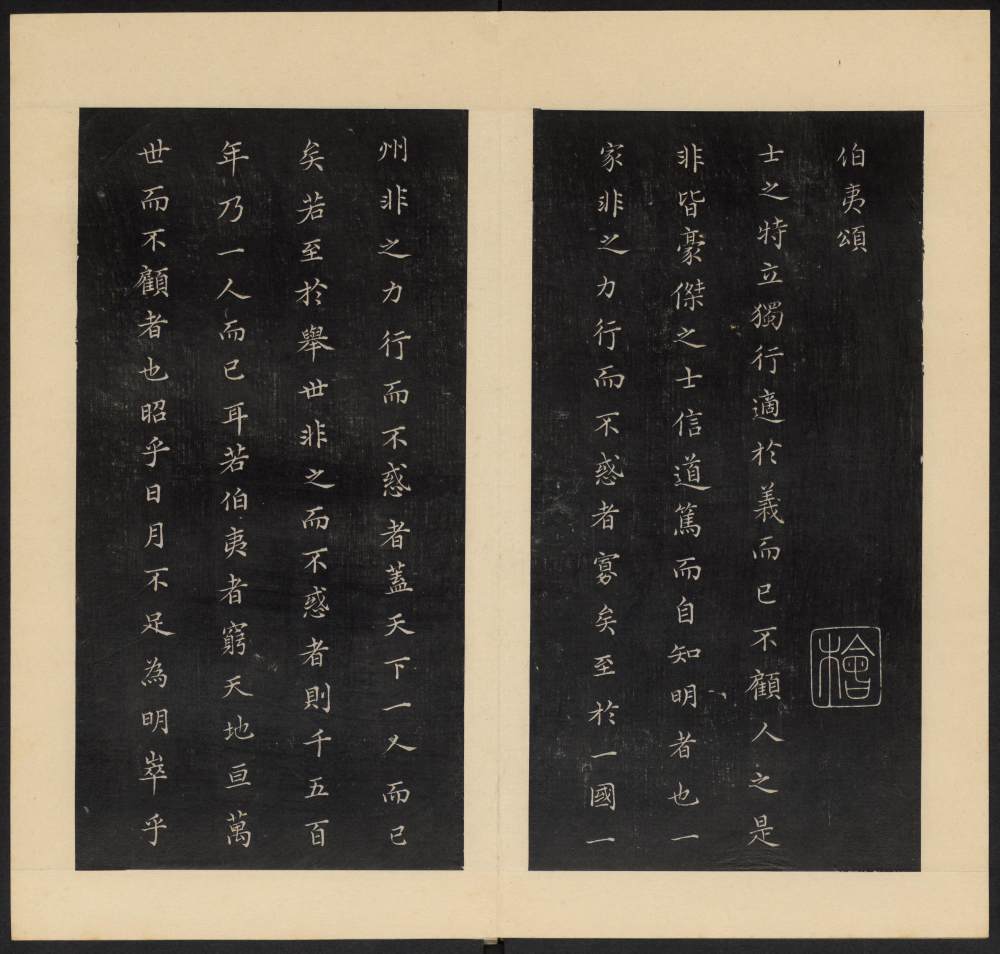 伯夷頌
士之特立獨行適於義而已不顧人之是
非皆豪傑之士信道篤而自知明者也一
家非之力行而不惑者寡矣至於一國一
州非之力行而不惑者蓋天下一人而已
矣若至於舉世非之而不惑者則千五百
年乃一人而已耳若伯夷者窮天地亘萬
世而不顧者也昭乎日月不足為明崒乎
檜